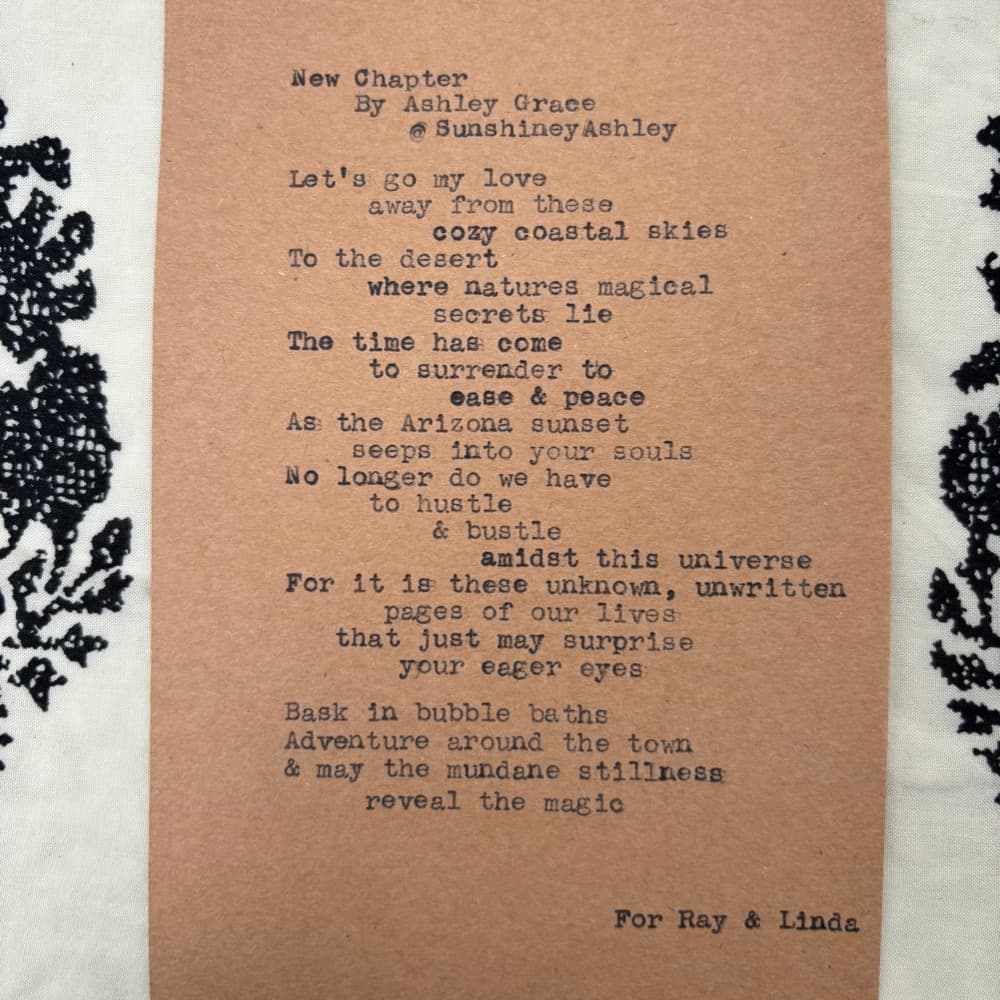 New Chapter
By Ashley Grace
@ SunshineyAshley
Let's go my love
away from these
cozy coastal skies
To the desert
where natures magical
secrets lie
The time has come
to surrender to
ease & peace
As the Arizona sunset
seeps into your souls
No longer do we have
to hustle
& bustle
amidst this universe
For it is these unknown, unwritten
pages of our lives
that just may surprise
your eager eyes
Bask in bubble baths
Adventure around the town
& may the mundane stillness
reveal the magic
For Ray & Linda